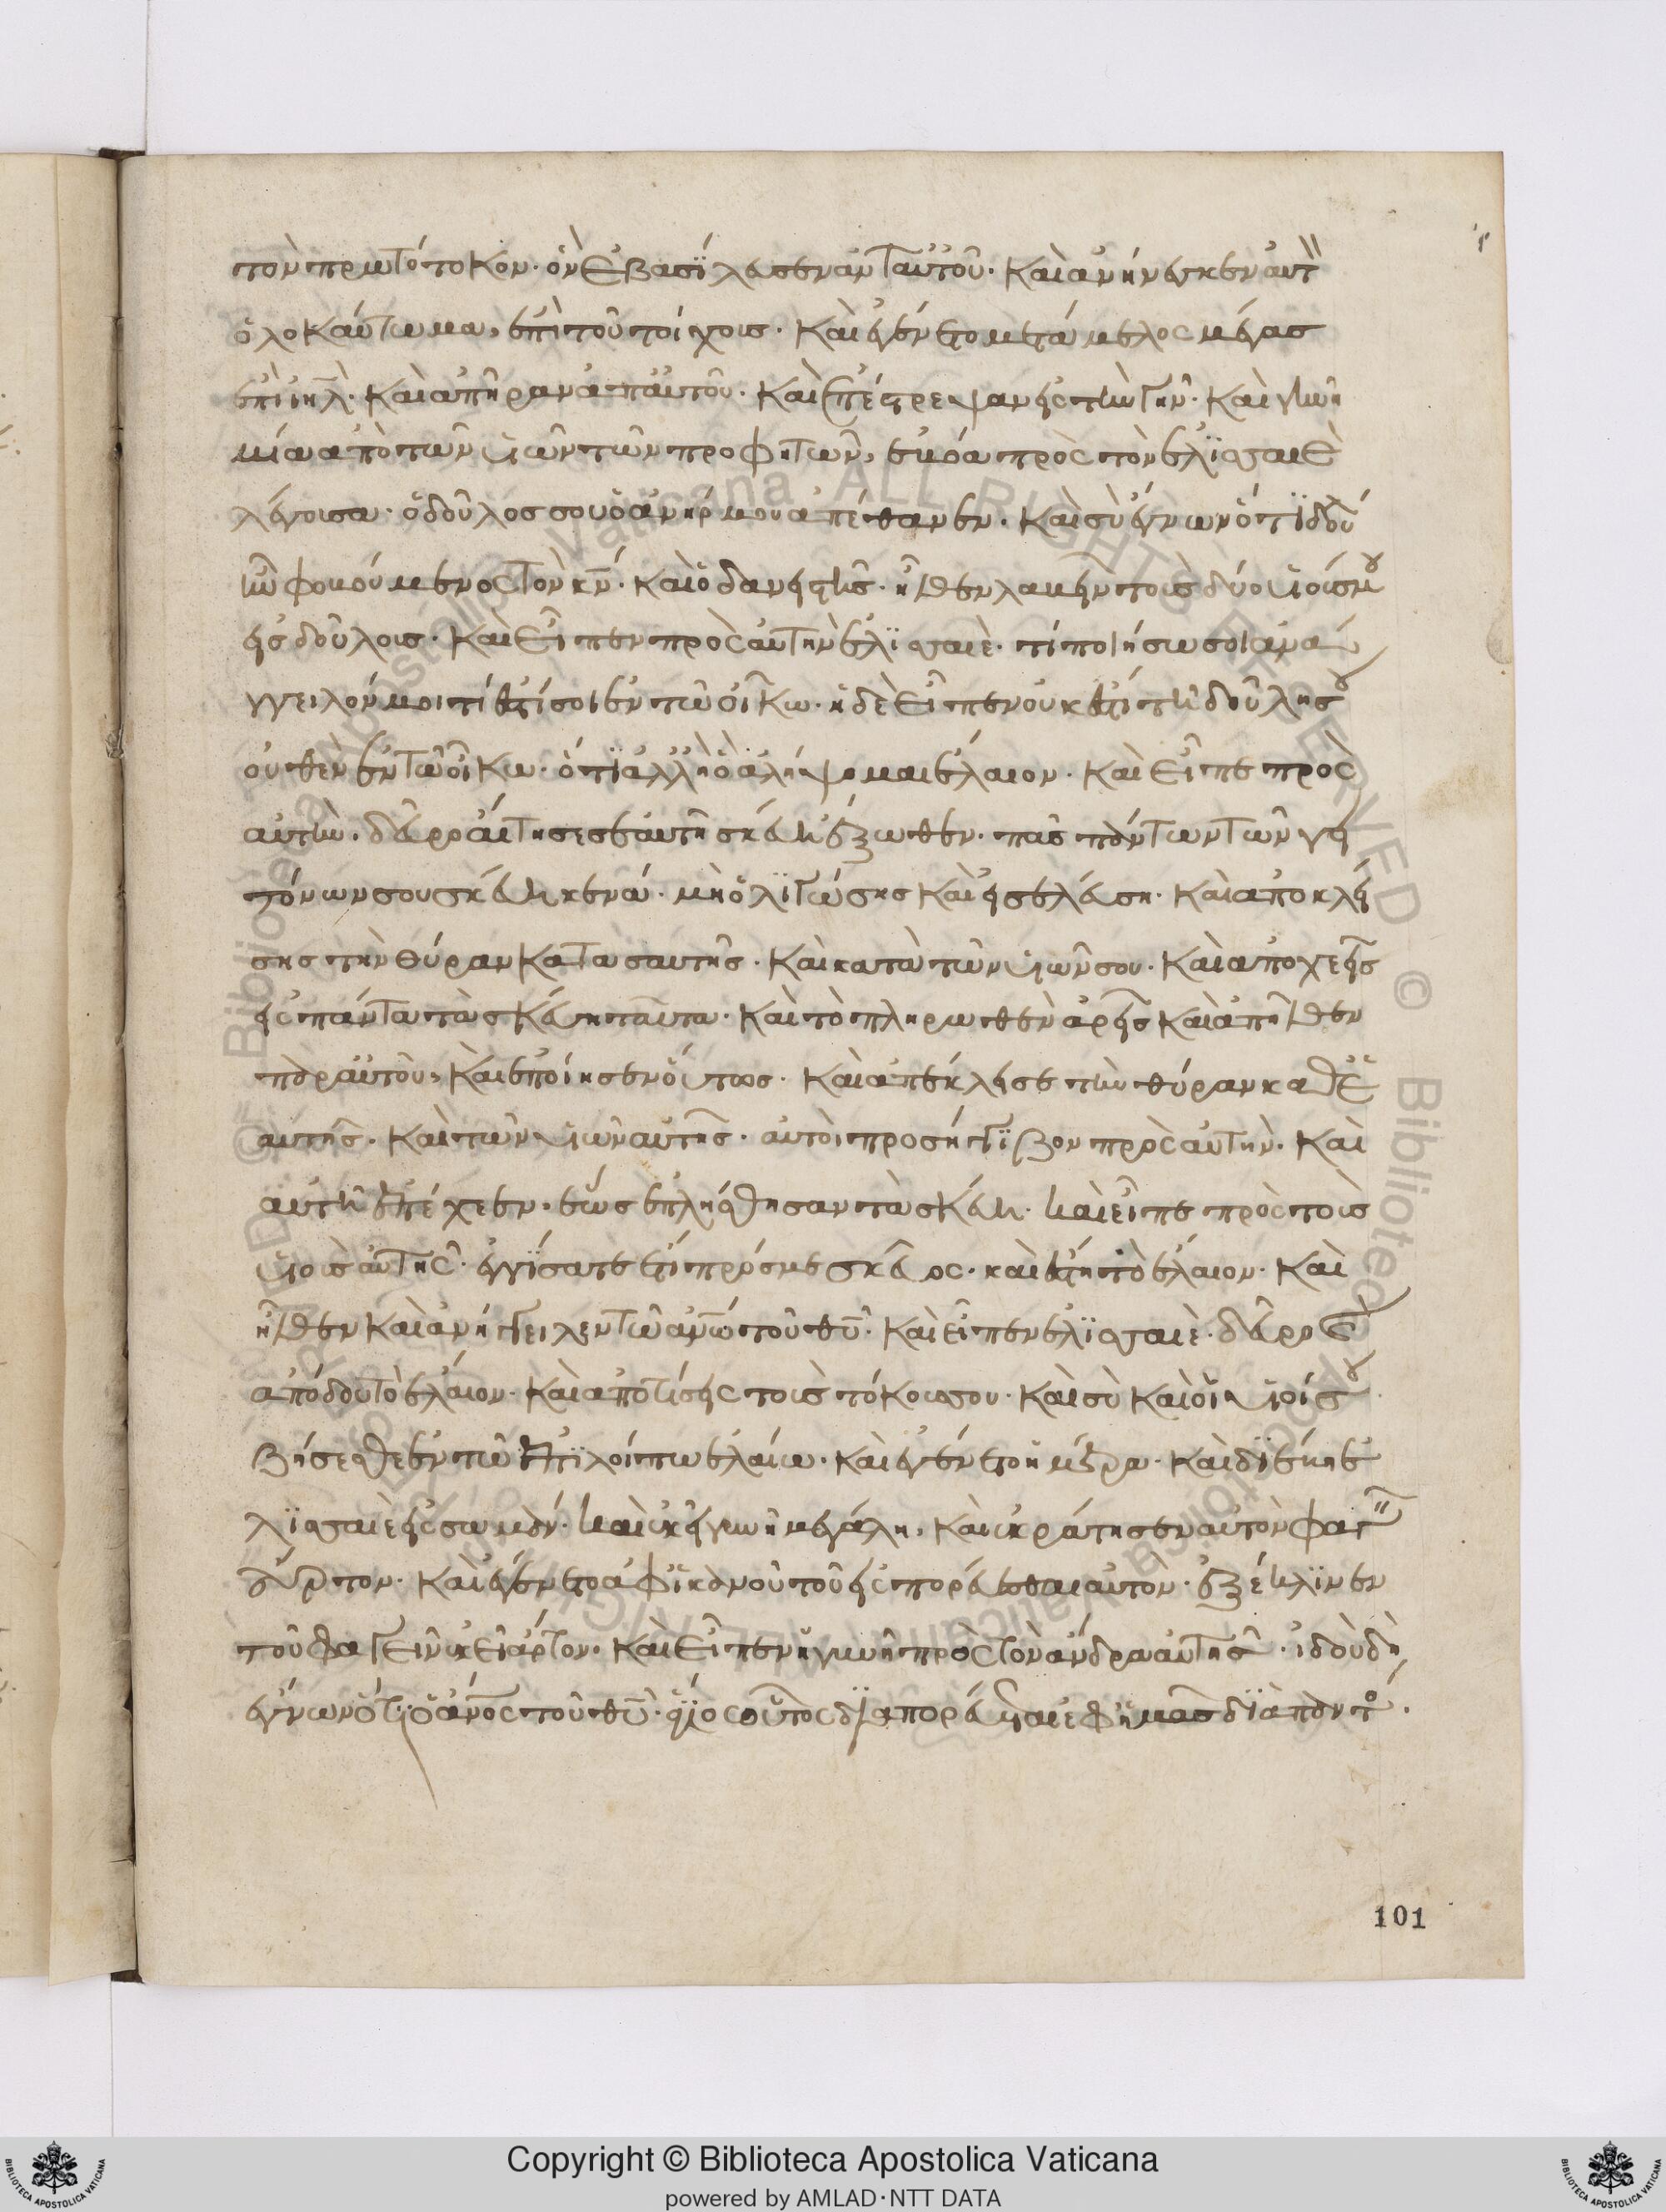 τὸν πρωτότοκον· ὃν ἐβασίλευσεν ἀντ' αὐτοῦ· καὶ ἀνήνεγκεν αὐτ
ὁλοκαύτωμα, ἐπὶ τοῦ τοίχους· καὶ ἐγένετο μετάμελος μέγας
ἐπὶ ιηλ· καὶ ἀπῆραν ἀπ' αὐτοῦ· καὶ ἐπέστρεψαν εἰς τὴν γῆν· καὶ γυνὴ
μία ἀπὸ τῶν υἱῶν τῶν προφητῶν, ἐβόα πρὸς τὸν ἐλϊσσαιὲ
λέγουσα· ὁ δοῦλος σου ὁ ἀνήρ μου ἀπέθανεν· καὶ σὺ ἔγνων ὅτϊ δοῦ
ἦν φοβούμενος τὸν κν· καὶ ὁ δανειστὴς· ἦλθεν λαβεῖν τοὺς δύο υἱούς μου
εἰς δούλους· καὶ εἶπεν πρὸς αὐτὴν ἐλϊσσαιὲ· τί ποιήσω σοι ἀνά
γγειλόν μοι τί ἐστί σοι ἐν τῶ οἴκω· ἡ δὲ εἶπεν οὐκ ἔστι τῆ δούλη σου
οὐθὲν ἐν τῶ οἴκω· ὅτϊ ἀλλ' ἢ ὃ ἀλήψομαι ἔλαιον· καὶ εἶπε πρὸς
αὐτὴν· δεῦρο αἴτησε σεαυτῆ σκεύη ἔξωθεν· παρὰ πάντων τῶν γει
τόνων σου σκεύη κενά· μὴ ὀλϊγώσης καὶ εἰσελεύση· καὶ ἀποκλεί
σης τὴν θύραν κατὰ σαυτῆς· καὶ κατὰ τῶν υἱῶν σου· καὶ ἀποχεεῖς
εἰς πάντα τὰ σκεύη ταῦτα· καὶ τὸ πληρωθὲν ἀρεῖς καὶ ἀπῆλθεν
παρ' αὐτοῦ, καὶ ἐποίησεν οὕτως· καὶ ἀπέκλεισε τὴν θύραν καθ' ἑ
αυτῆς· καὶ τῶν υἱῶν αὐτῆς· αὐτοὶ προσήγγϊζον πρὸς αὐτὴν· καὶ
αὐτὴ ἐπέχεεν, ἕως ἐπλήσθησαν τὰ σκεύη· καὶ εἶπε πρὸς τοὺς
υἱοὺς αὐτῆς· ἐγγίσατε ἔτι πρός με σκεῦος· καὶ ἔστη τὸ ἔλαιον· καὶ
ἦλθεν καὶ ἀνήγγειλεν τῶ ἀνω τοῦ θυ· καὶ εἶπεν ἐλϊσσαιὲ· δεῦρο καὶ
ἀπόδου τὸ ἔλαιον· καὶ ἀποτίσεις τοὺς τόκους σου· καὶ σὺ καὶ οἱ υἱοί σου
ζήσεσθε ἐν τῶ ἐπϊλοίπω ἐλαίω· καὶ ἐγένετο ἡμέρα· καὶ δϊέβη ἐ
λϊσσαιὲ εἰς σωμάν· καὶ ἐκεῖ γυνὴ μεγάλη, καὶ ἐκράτησεν αὐτὸν φαγεῖν
ἄρτον· καὶ ἐγένετο ἀφ' ἱκανοῦ τοῦ εἰσπορεύεσθαι αὐτὸν· ἐξέκλϊνεν
τοῦ φαγεῖν ἐκεῖ ἄρτον· καὶ εἶπεν ἡ γυνὴ πρὸς τὸν ἄνδρα αὐτῆς· ἰδοὺ δὴ
ἔγνων ὅτϊ ὁ ἄνος τοῦ θυ· ἅγιος οὗτος δϊαπορεύεται ἐφ' ἡμᾶς δϊαπαντὸ·
101
Copyright © Biblioteca Apostolica Vaticana
powered by AMLAD·NTT DATA